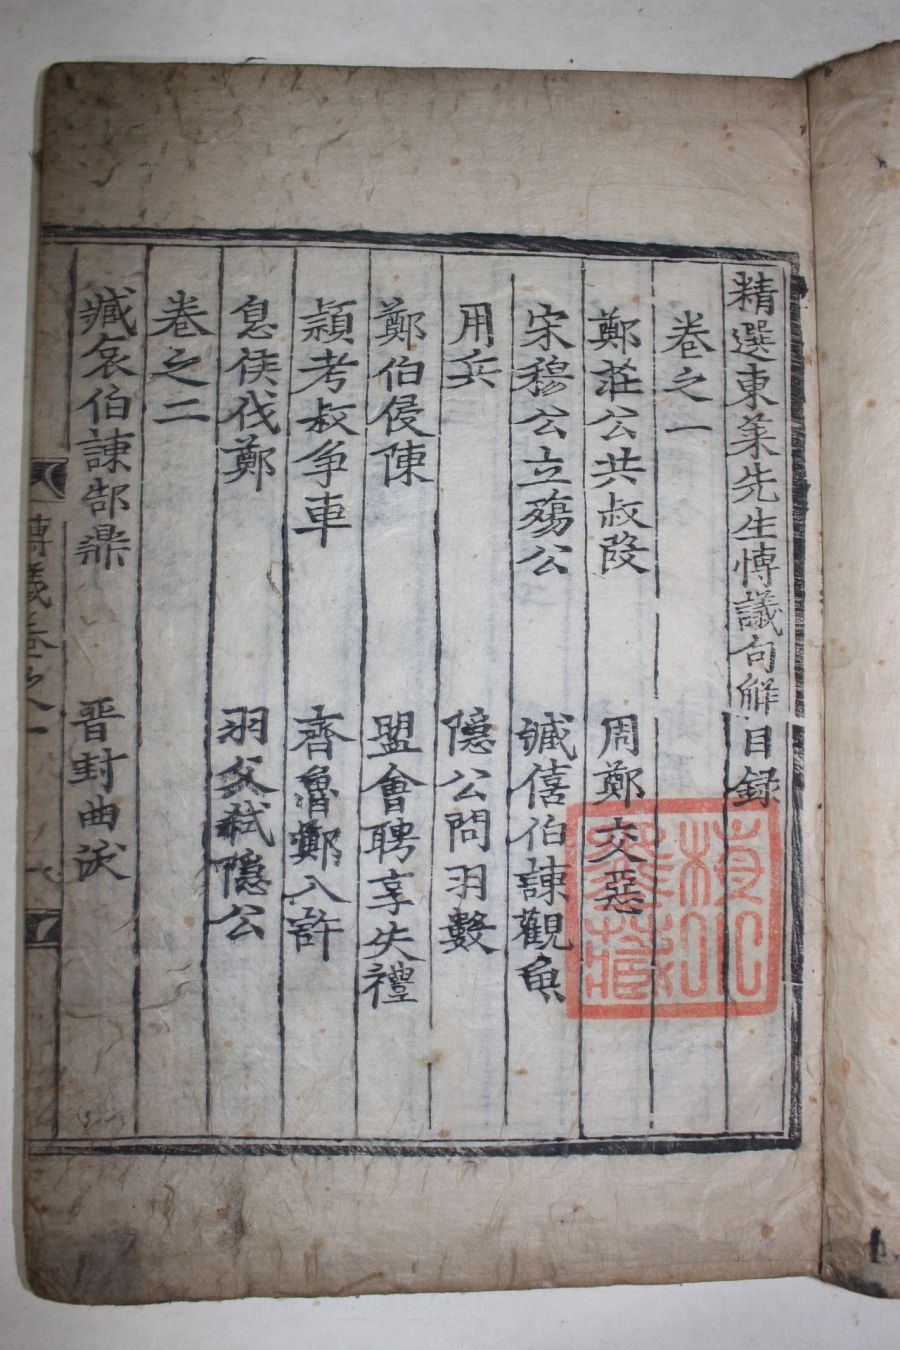 精選東萊先生愽議句觧目録
卷之一
鄭莊公共叔段　周鄭交惡
宋穆公立殤公　臧僖伯諫觀魚
用兵　隱公問羽數
鄭伯侵陳　盟會聘享失禮
潁考叔争車　齊魯鄭入許
息侯伐鄭　羽父弑隱公
卷之二
臧哀伯諫郜鼎　晉封曲沃
愽議卷之一